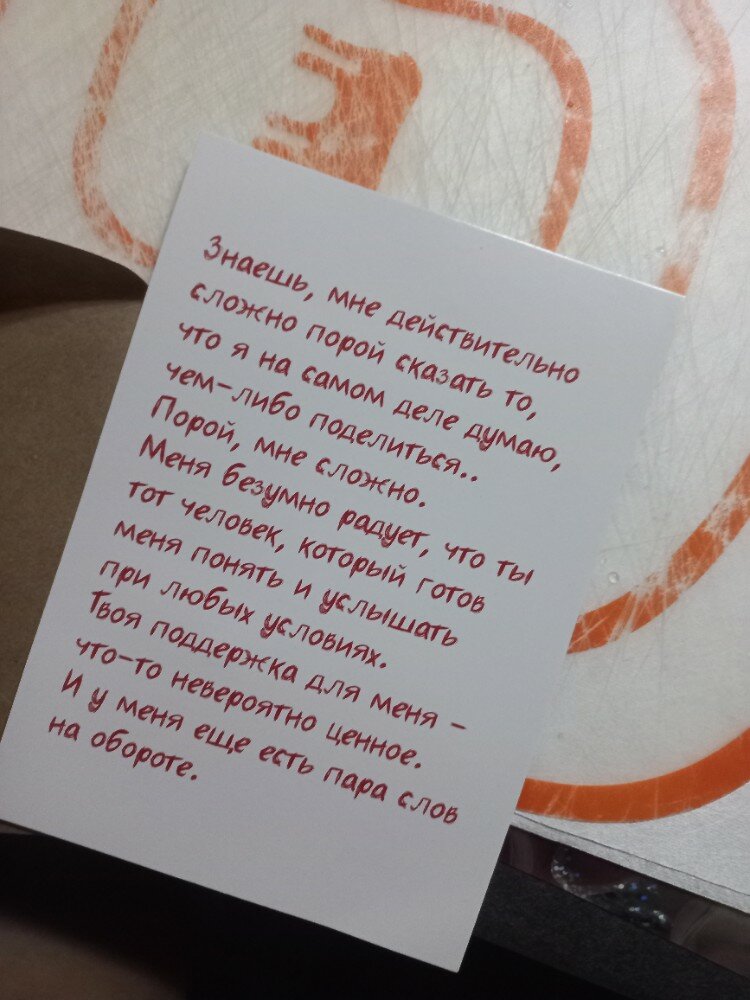 Знаешь, мне действительно
сложно порой сказать то,
что я на самом деле думаю,
чем-либо поделиться..
Порой, мне сложно.
Меня безумно радует, что ты
тот человек, который готов
меня понять и услышать
при любых условиях.
Твоя поддержка для меня -
что-то невероятно ценное.
И у меня еще есть пара слов
на обороте.